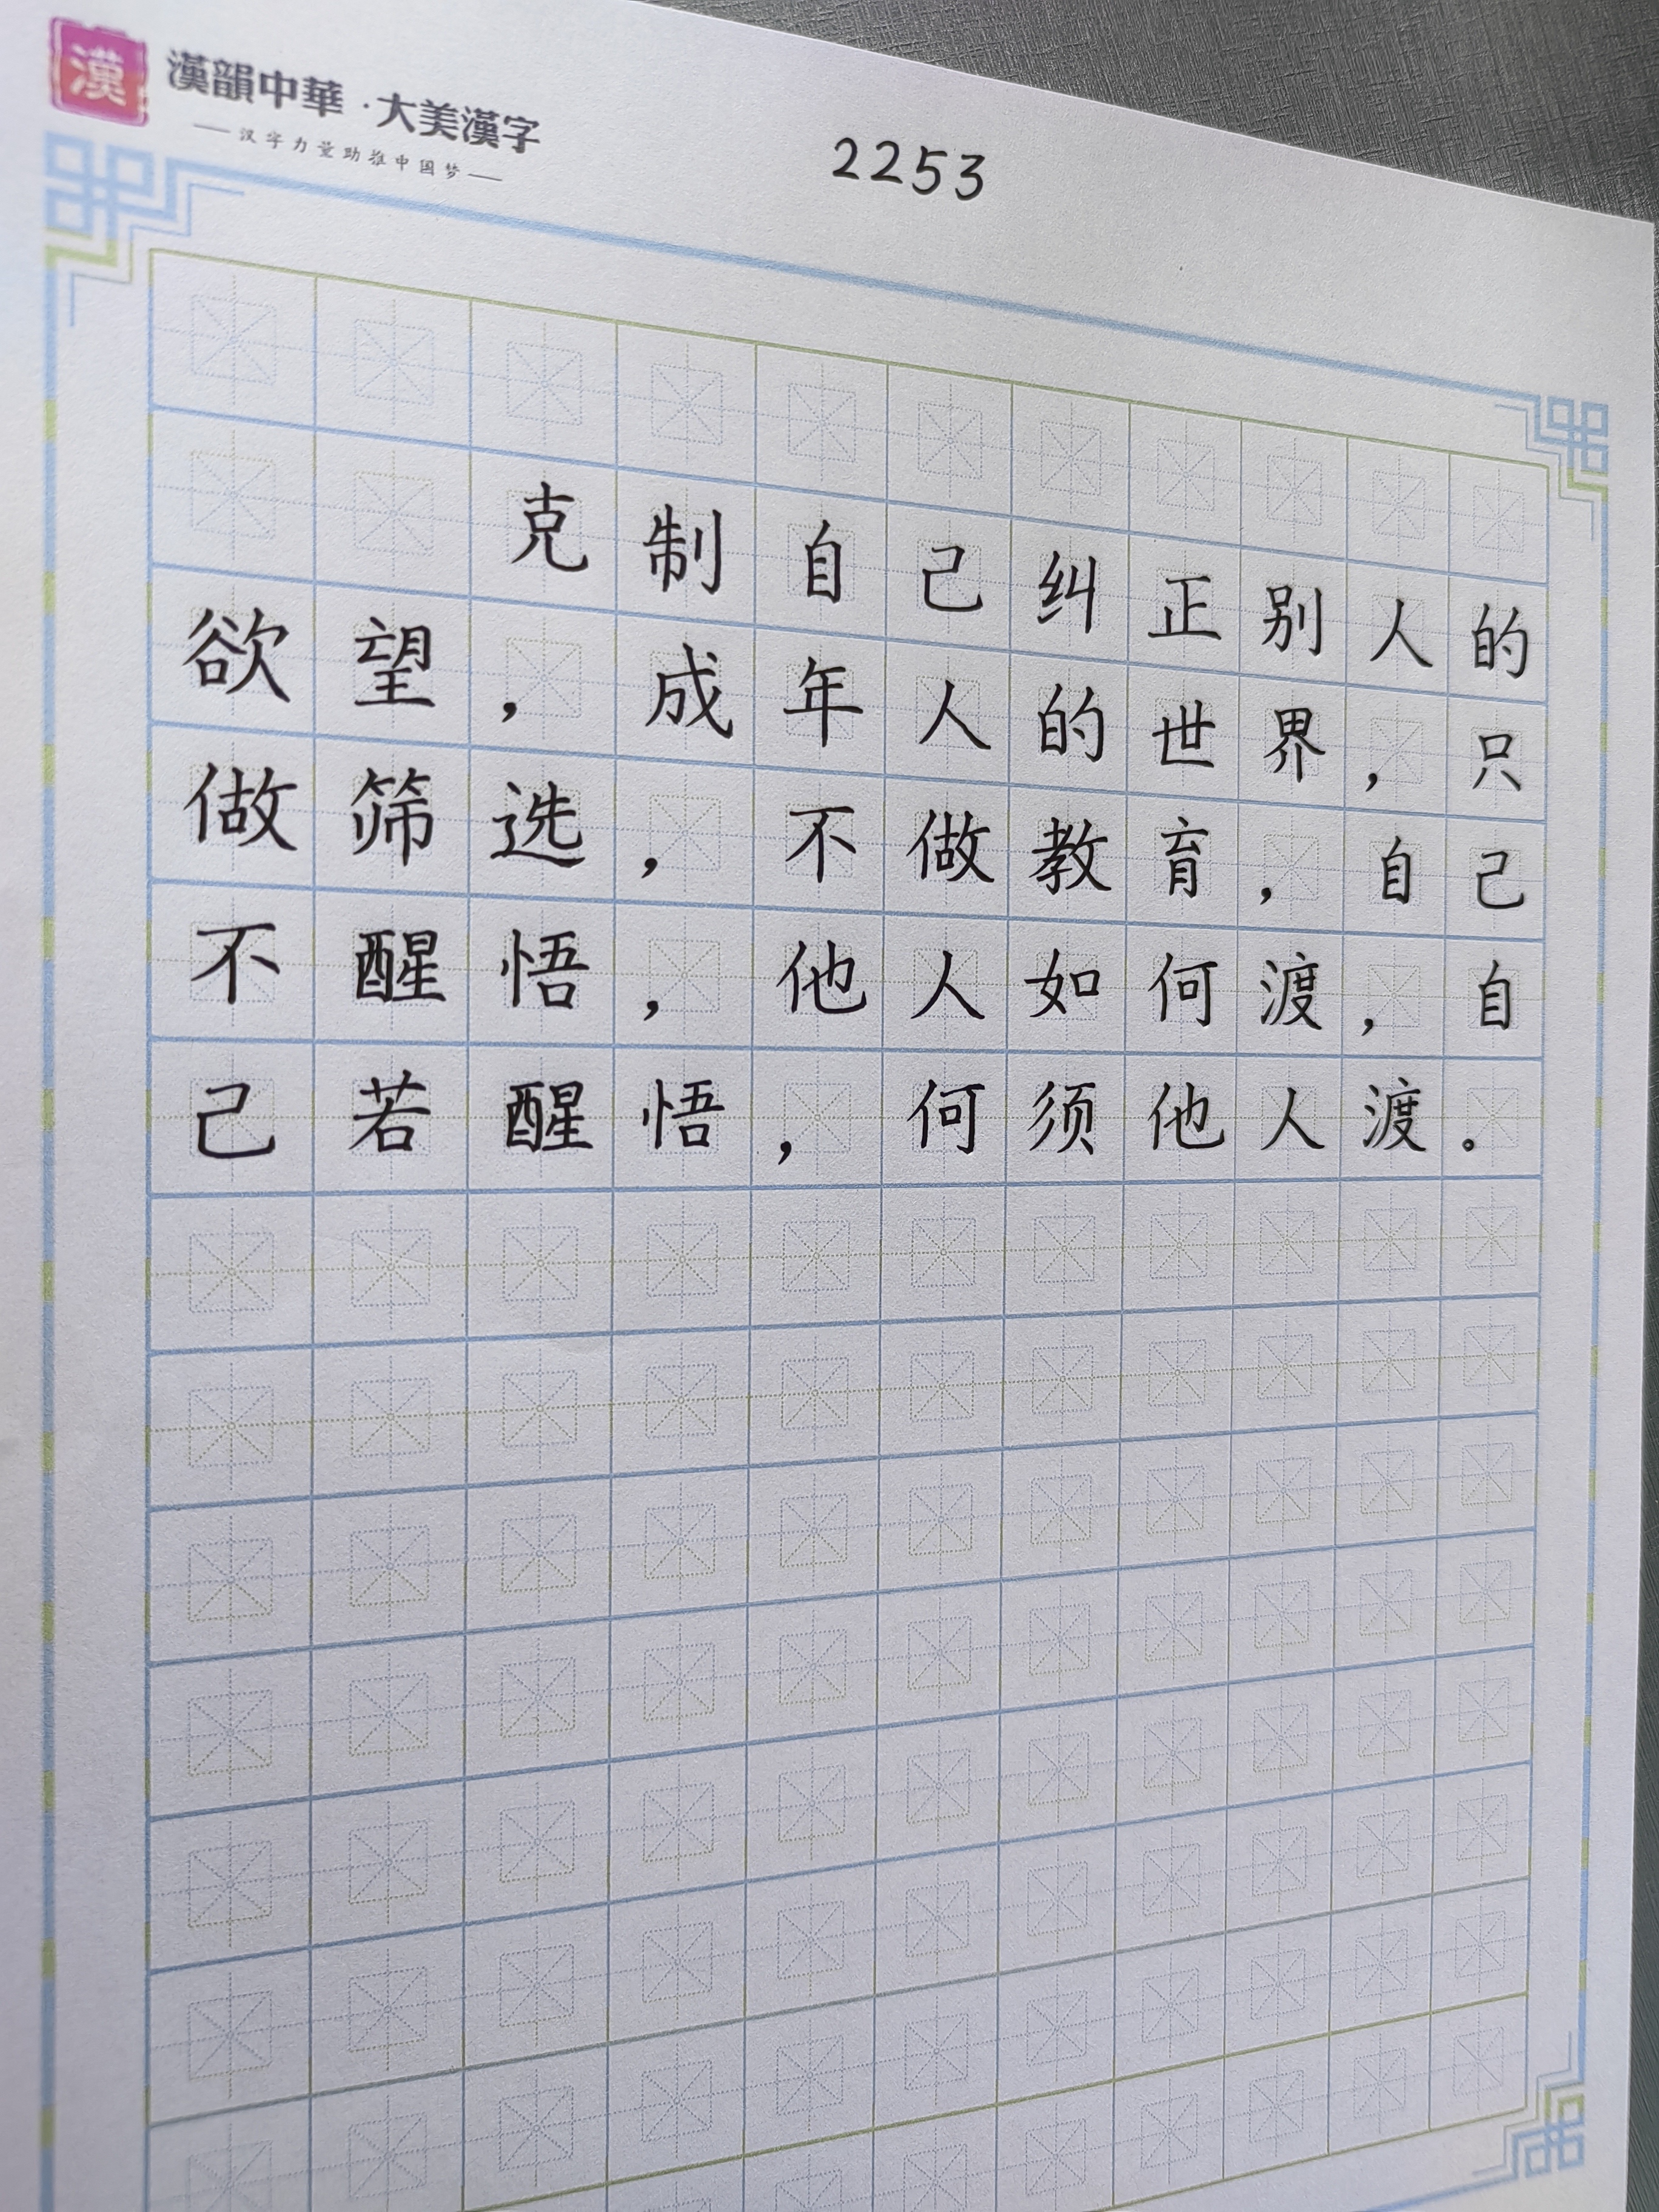 漢
漢韻中華·大美漢字
——汉字力量助推中国梦——
2253
克制自己纠正别人的
欲望，成年人的世界，只
做筛选，不做教育，自己
不醒悟，他人如何渡，自
己若醒悟，何须他人渡。